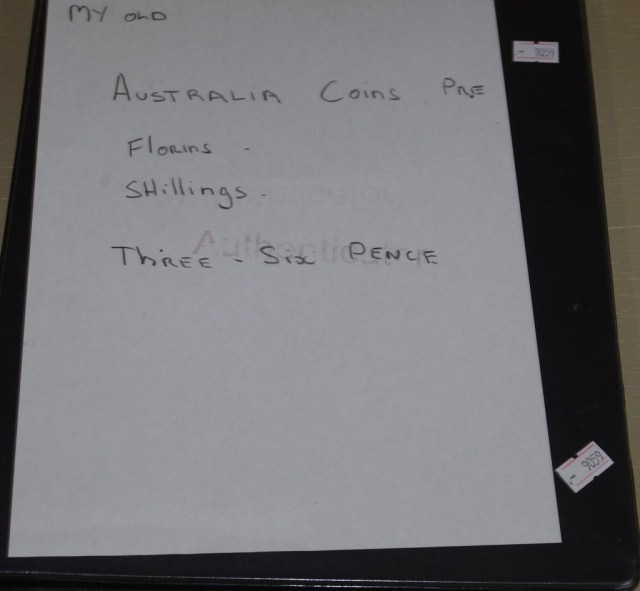 MY OLD
- 9059
AUSTRALIA Coins PRE
FloRins -
SHillings -
THREE - Six PENCE
- 9059